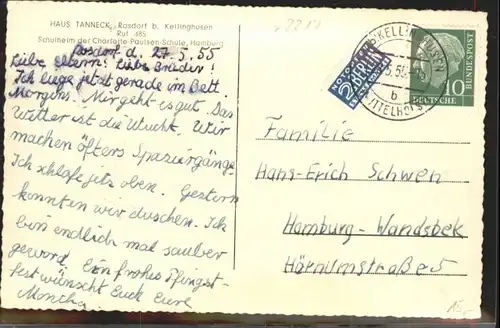 HAUS TANNECK, Rosdorf b. Kellinghusen
Ruf 485
Schulheim der Charlotte-Paulsen-Schule, Hamburg
Rosdorf d. 27.5.55
Liebe Eltern! Liebe Brüder!
Ich liege jetzt gerade im Bett.
Morgens. Mir geht es gut. Das
Wetter ist die Wucht. Wir
machen öfters Spaziergänge.
Ich schlafe jetz oben. Gestern
konnten wir duschen. Ich
bin endlich mal sauber
geword. Ein frohes Pfingst-
fest wünscht Euch Eure
KELLINGHUSEN
b
MITTELHOLST
NOTOPFER
2 BERLIN
STEUERMARKE
DEUTSCHE BUNDESPOST
10
Familie
Hans-Erich Schwen
Hamburg-Wandsbek
Hörnumstraße 5